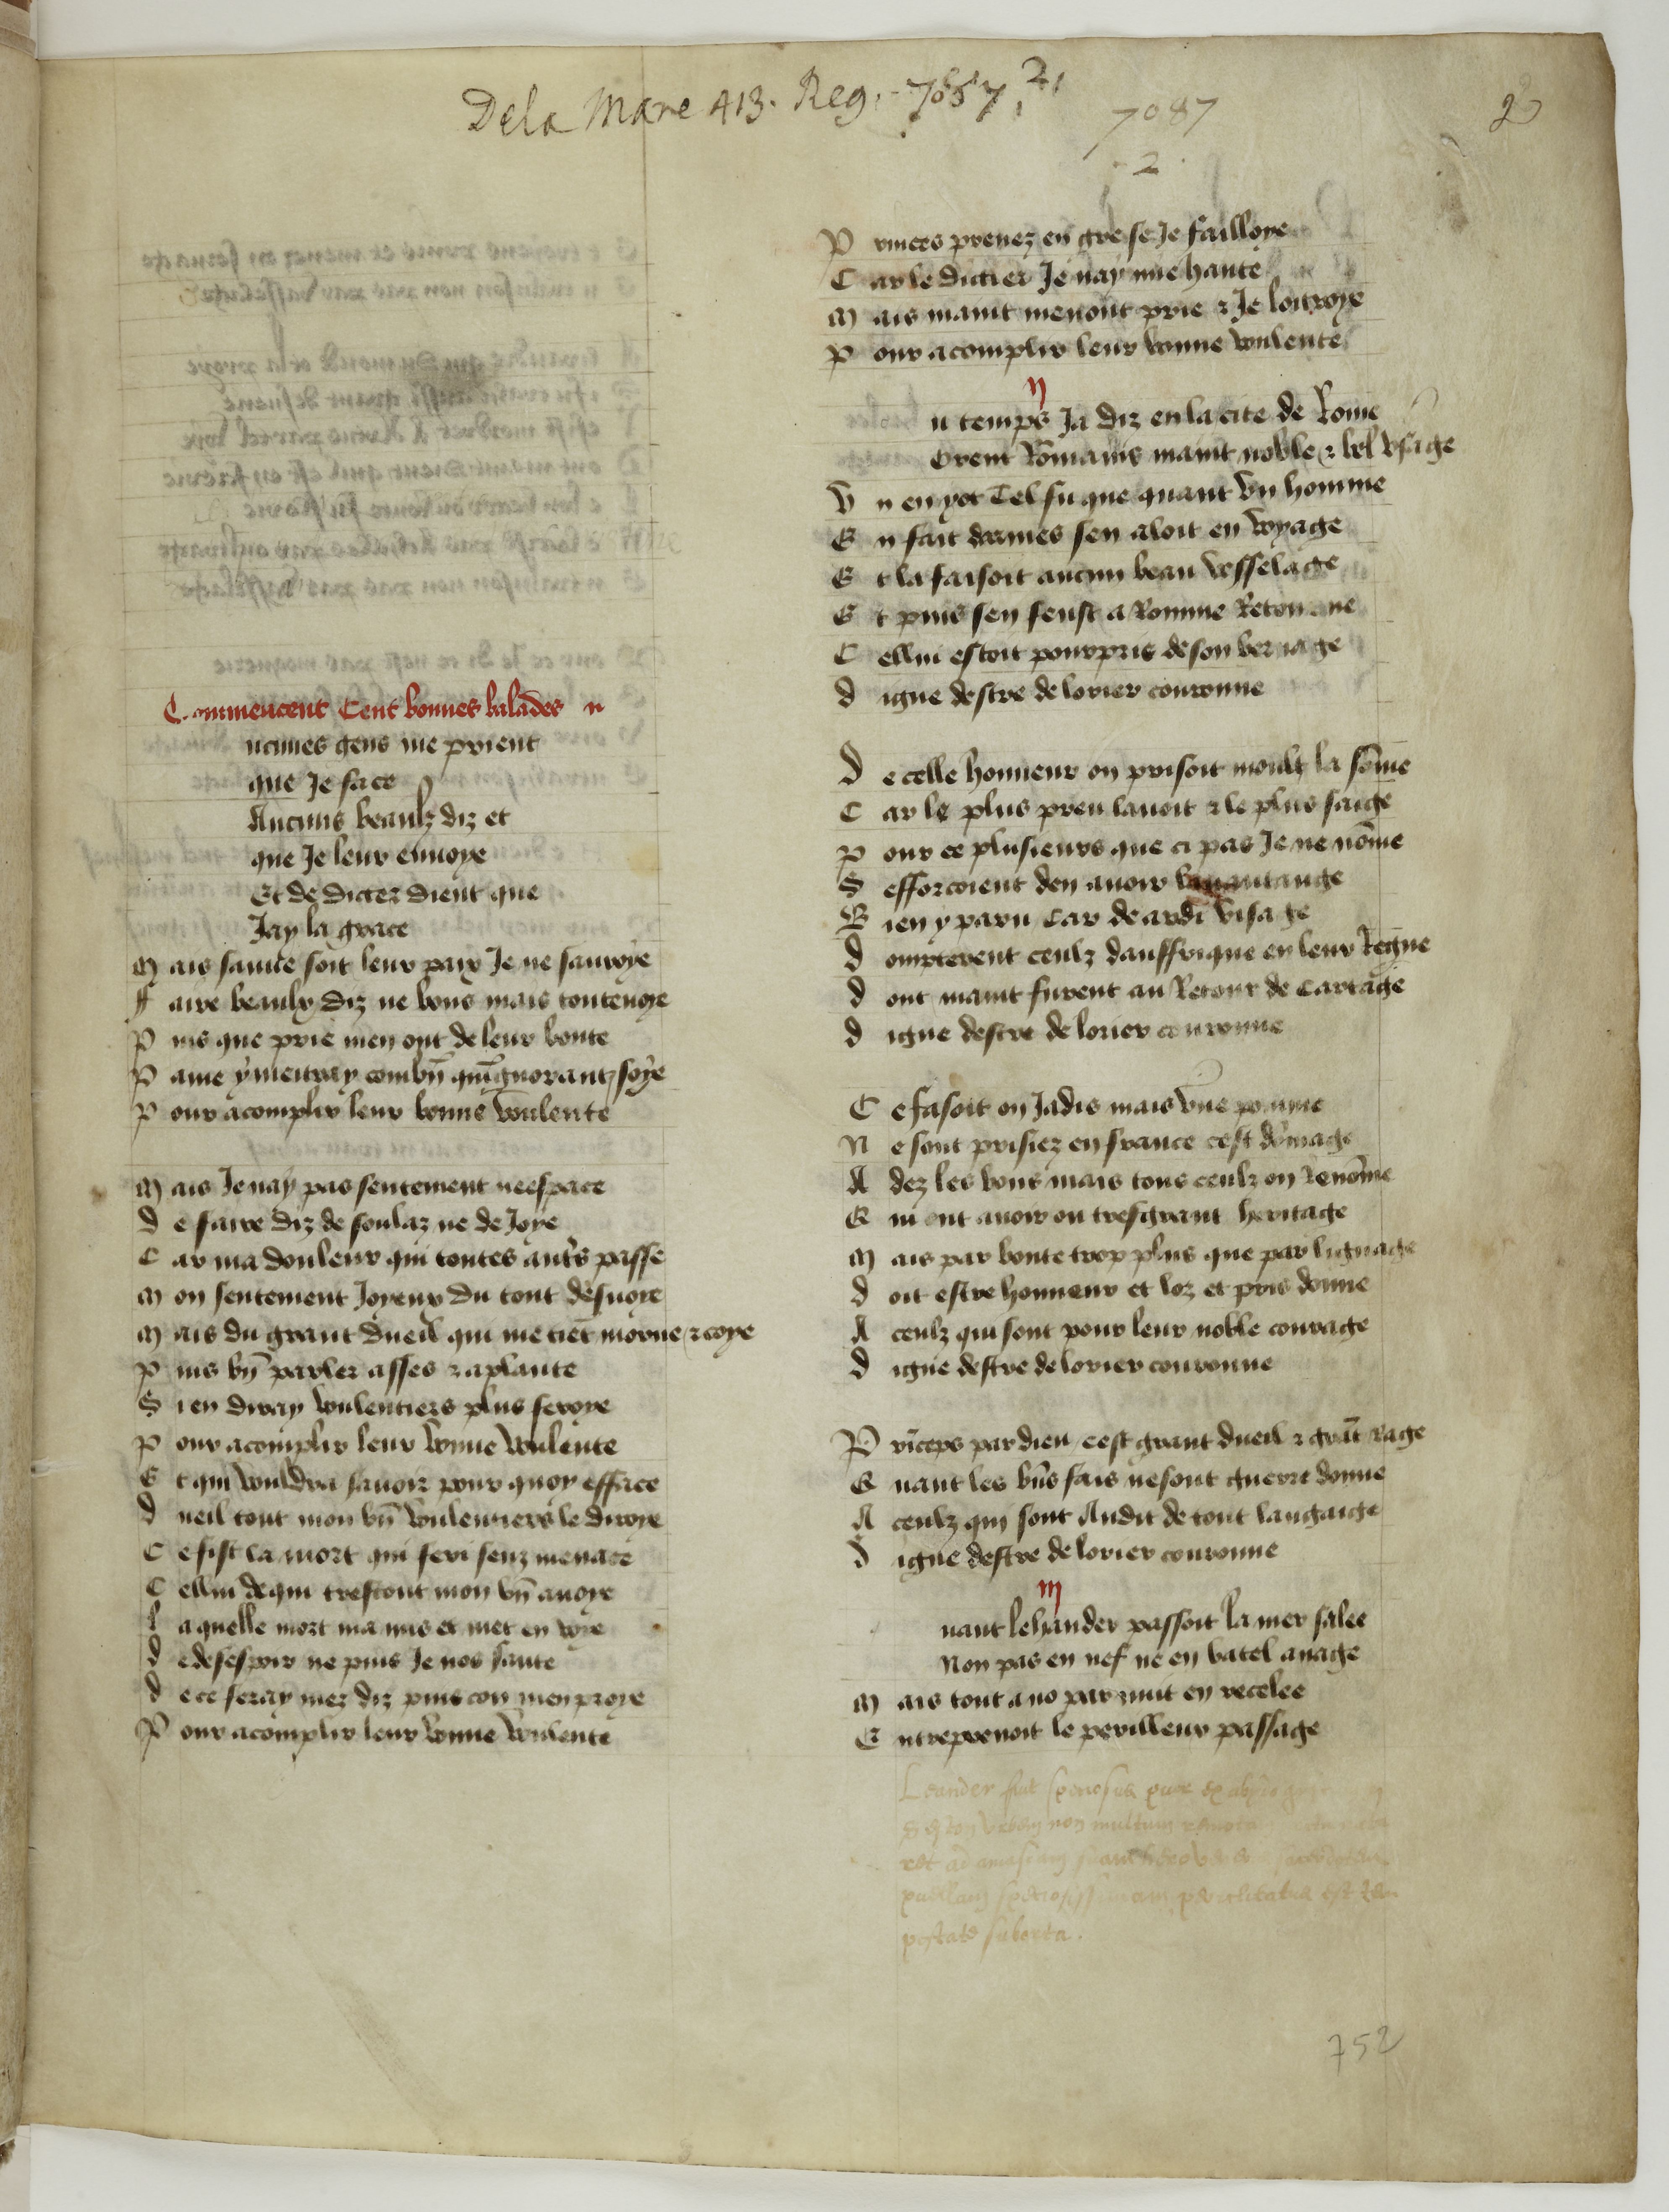 De la Mare 413. Reg. 7087, 2,
7087
2
2
Commencent Cent bonnes balades
ucunes gens me prient
que Je face
Aucuns beaulz diz et
que Je leur enuoye
Et de dicter dient que
Jay la grace
M ais sauue soit leur paix Je ne sauroye
F aire beaulx diz ne bons mais toutenoye
P uis que prie men ont de leur bonte
P aine y mettray combn̄ qui͞gnorant soye
P our acomplir leur bonne voulente
M ais Je nay pas sentement ne espace
d e faire diz de soulaz ne de Joye
C ar ma douleur qui toutes aut's passe
M on sentement Joyeux du tout desuoye
M ais du grant dueil qui me tiēt morne ⁊ coye
P uis bn̄ parler asses ⁊ a plante
S i en diray voulentiers plus feroye
P our acomplir leur bonne voulente
E t qui vouldra sauoir pour quoy efface
d ueil tout mon bn̄ voulentiers le diroye
C e fist la mort qui feri senz menace
C ellui de qui trestout mon bn̄ auoye
l aquelle mort ma mis et met en voye
d e desespoir ne puis Je nos sante
d e ce feray mez diz puis con men proye
P our acomplir leur bonne voulente
P rinces prenez en gre se Je failloye
C ar le dictier Je nay mie hante
M ais maint menont prie ⁊ Je lottroye
P our acomplir leur bonne voulente
ij
u temps Ja diz en la cite de Rome
Orent Rommains maint noble ⁊ bel vsage
V n en yot Tel fu que quant vn homme
E n fait darmes sen aloit en voyage
E t la faisoit aucun beau vesselage
E t puis sen feust a Romme Retourne
C ellui estoit pourpris de son bernage
d igne destre de lorier couronne
D e celle honneur on prisoit moult la sōme
C ar le plus preu lauoit ⁊ le plus saige
P our ce plusieurs que ci pas Je ne nōme
S efforcoient den auoir lauantange
B ien y paru Car de ardi visage
d ompterent ceulz dauffrique en leur Regne
d ont maint furent au Retour de Cartage
d igne destre de lorier couronne
C e fasoit on Jadis mais vne pomme
N e sont prisiez en france cest dōmage
A dez les bons mais tous ceulz on Renōme
Q ui ont auoir ou tresgrant heritage
M ais par bonte trop plus que par lignage
d oit estre honneur et loz et pris donne
A ceulz qui sont pour leur noble courage
d igne destre de lorier couronne
P rīceps par dieu cest grant dueil ⁊ grāt rage
Q uant les bn̄s fais ne sont guerre donne
A ceulz qui sont Audit de tout langaige
D igne destre de lorier couronne
iij
uant lehander passoit la mer salee
Non pas en nef ne en batel a nage
M ais tout a no par nuit en recelee
E ntreprenoit le perilleux passage
Leander fuit speciosus
non multum
ad amasiam suam
puellam speciosissimam periclitatus est tem
pestate suborta.
752